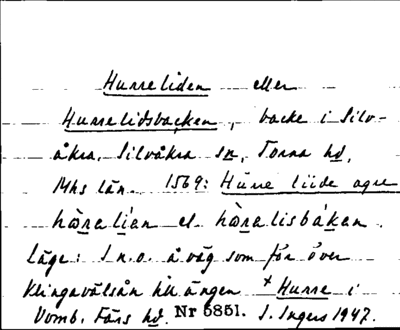 Hurreliden eller
Hurrelidsbacken, backe i Silv-
åkra, Silvåkra sn, Torna hd,
Mhs län. 1569: Hurre liide agre
håralian el. håralisbákan.
Läge: I n.o. å väg som för över
Klingavälsån till ängen + Hurre i
Vomb. Färs hd. Nr 5851. I. Ingers 1947.